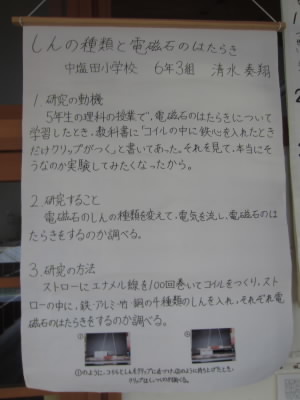 しんの種類と電磁石のはたらき
中塩田小学校　6年3組　清水 奏翔
1. 研究の動機
5年生の理科の授業で、電磁石のはたらきについて
学習したとき、教科書に「コイルの中に鉄心を入れたとき
だけクリップがつく」と書いてあった。それを見て、本当にそ
うなのか実験してみたくなったから。
2. 研究すること
電磁石のしんの種類を変えて、電気を流し、電磁石のは
たらきをするのか調べる。
3. 研究の方法
ストローにエナメル線を100回巻いてコイルをつくり、スト
ローの中に、鉄・アルミ・竹・銅の4種類のしんを入れ、それぞれ電
磁石のはたらきをするのか調べる。
①のように、コイルとしんをクリップに近づけ、②のように持ち上げたとき、
クリップは